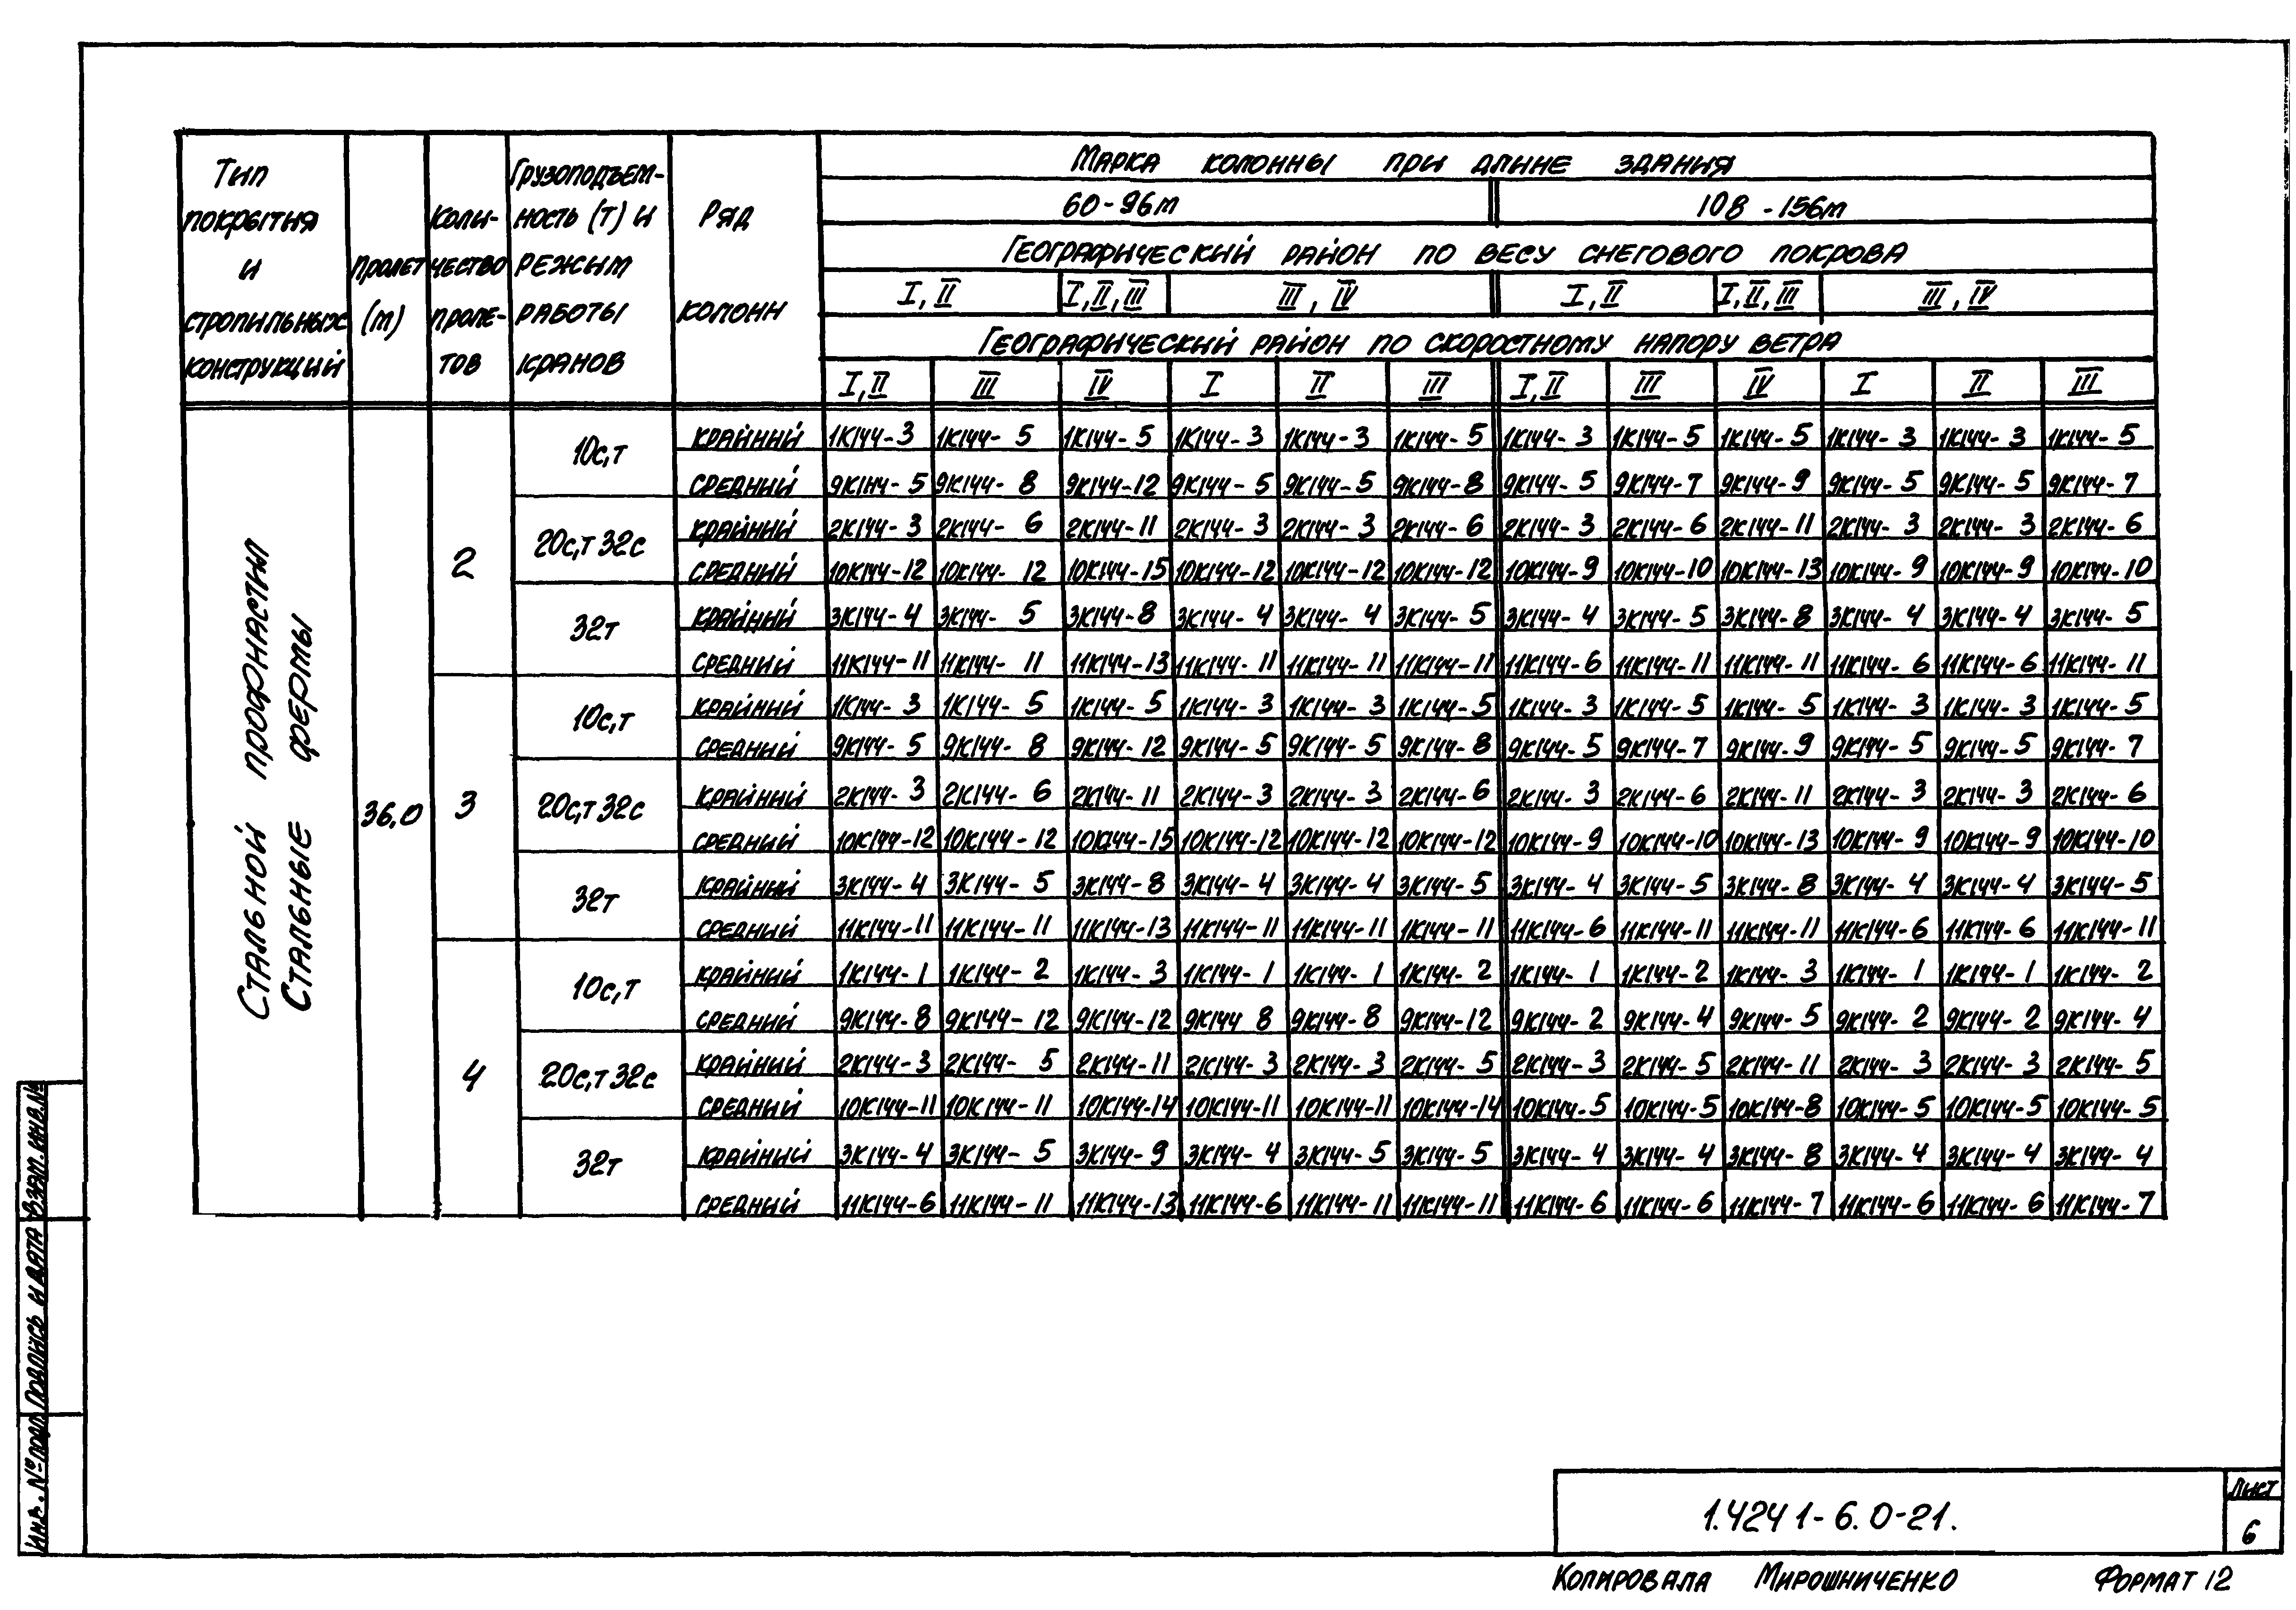 Тип покрытия и стропильных конструкций
Пролет (м)
Количество пролетов
Грузоподъемность (т) и режим работы кранов
Ряд колонн
Марка колонны при длине здания
60-96м 108-156м
Географический район по весу снегового покрова
I,II I,II,III III,IV I,II I,II,III III,IV
Географический район по скоростному напору ветра
I,II III IV I II III I,II III IV I II III
Стальной профнастил
Стальные фермы
36,0
2
10с,т
крайний 1К144-3 1К144-5 1К144-5 1К144-3 1К144-3 1К144-5 1К144-3 1К144-5 1К144-5 1К144-3 1К144-3 1К144-5
средний 9К144-5 9К144-8 9К144-12 9К144-5 9К144-5 9К144-8 9К144-5 9К144-7 9К144-9 9К144-5 9К144-5 9К144-7
20с,т 32с
крайний 2К144-3 2К144-6 2К144-11 2К144-3 2К144-3 2К144-6 2К144-3 2К144-6 2К144-11 2К144-3 2К144-3 2К144-6
средний 10К144-12 10К144-12 10К144-15 10К144-12 10К144-12 10К144-12 10К144-9 10К144-10 10К144-13 10К144-9 10К144-9 10К144-10
32т
крайний 3К144-4 3К144-5 3К144-8 3К144-4 3К144-4 3К144-5 3К144-4 3К144-5 3К144-8 3К144-4 3К144-4 3К144-5
средний 11К144-11 11К144-11 11К144-13 11К144-11 11К144-11 11К144-11 11К144-6 11К144-11 11К144-11 11К144-6 11К144-6 11К144-11
3
10с,т
крайний 1К144-3 1К144-5 1К144-5 1К144-3 1К144-3 1К144-5 1К144-3 1К144-5 1К144-5 1К144-3 1К144-3 1К144-5
средний 9К144-5 9К144-8 9К144-12 9К144-5 9К144-5 9К144-8 9К144-5 9К144-7 9К144-9 9К144-5 9К144-5 9К144-7
20с,т 32с
крайний 2К144-3 2К144-6 2К144-11 2К144-3 2К144-3 2К144-6 2К144-3 2К144-6 2К144-11 2К144-3 2К144-3 2К144-6
средний 10К144-12 10К144-12 10К144-15 10К144-12 10К144-12 10К144-12 10К144-9 10К144-10 10К144-13 10К144-9 10К144-9 10К144-10
32т
крайний 3К144-4 3К144-5 3К144-8 3К144-4 3К144-4 3К144-5 3К144-4 3К144-5 3К144-8 3К144-4 3К144-4 3К144-5
средний 11К144-11 11К144-11 11К144-13 11К144-11 11К144-11 1К144-11 11К144-6 11К144-11 11К144-11 11К144-6 11К144-6 11К144-11
4
10с,т
крайний 1К144-1 1К144-2 1К144-3 1К144-1 1К144-1 1К144-2 1К144-1 1К144-2 1К144-3 1К144-1 1К144-1 1К144-2
средний 9К144-8 9К144-12 9К144-12 9К144 8 9К144-8 9К144-12 9К144-2 9К144-4 9К144-5 9К144-2 9К144-2 9К144-4
20с,т 32с
крайний 2К144-3 2К144-5 2К144-11 2К144-3 2К144-3 2К144-5 2К144-3 2К144-5 2К144-11 2К144-3 2К144-3 2К144-5
средний 10К144-11 10К144-11 10К144-14 10К144-11 10К144-11 10К144-14 10К144-5 10К144-5 10К144-8 10К144-5 10К144-5 10К144-5
32т
крайний 3К144-4 3К144-5 3К144-9 3К144-4 3К144-5 3К144-5 3К144-4 3К144-4 3К144-8 3К144-4 3К144-4 3К144-4
средний 11К144-6 11К144-11 11К144-13 11К144-6 11К144-11 11К144-11 11К144-6 11К144-6 11К144-7 11К144-6 11К144-6 11К144-7
Взам. инв.№
Подпись и дата
Инв. № подл.
1.424 1-6.0-21.
Лист
6
Копировала Мирошниченко Формат 12